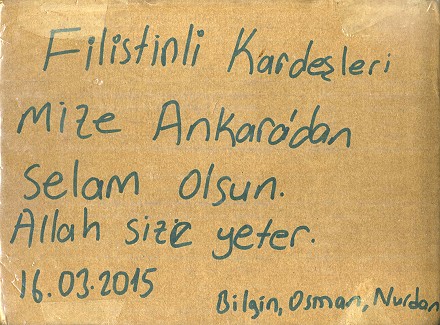 Filistinli Kardeşleri
mize Ankara'dan
selam olsun.
Allah size yeter.
16.03.2015
Bilgin, Osman, Nurdan